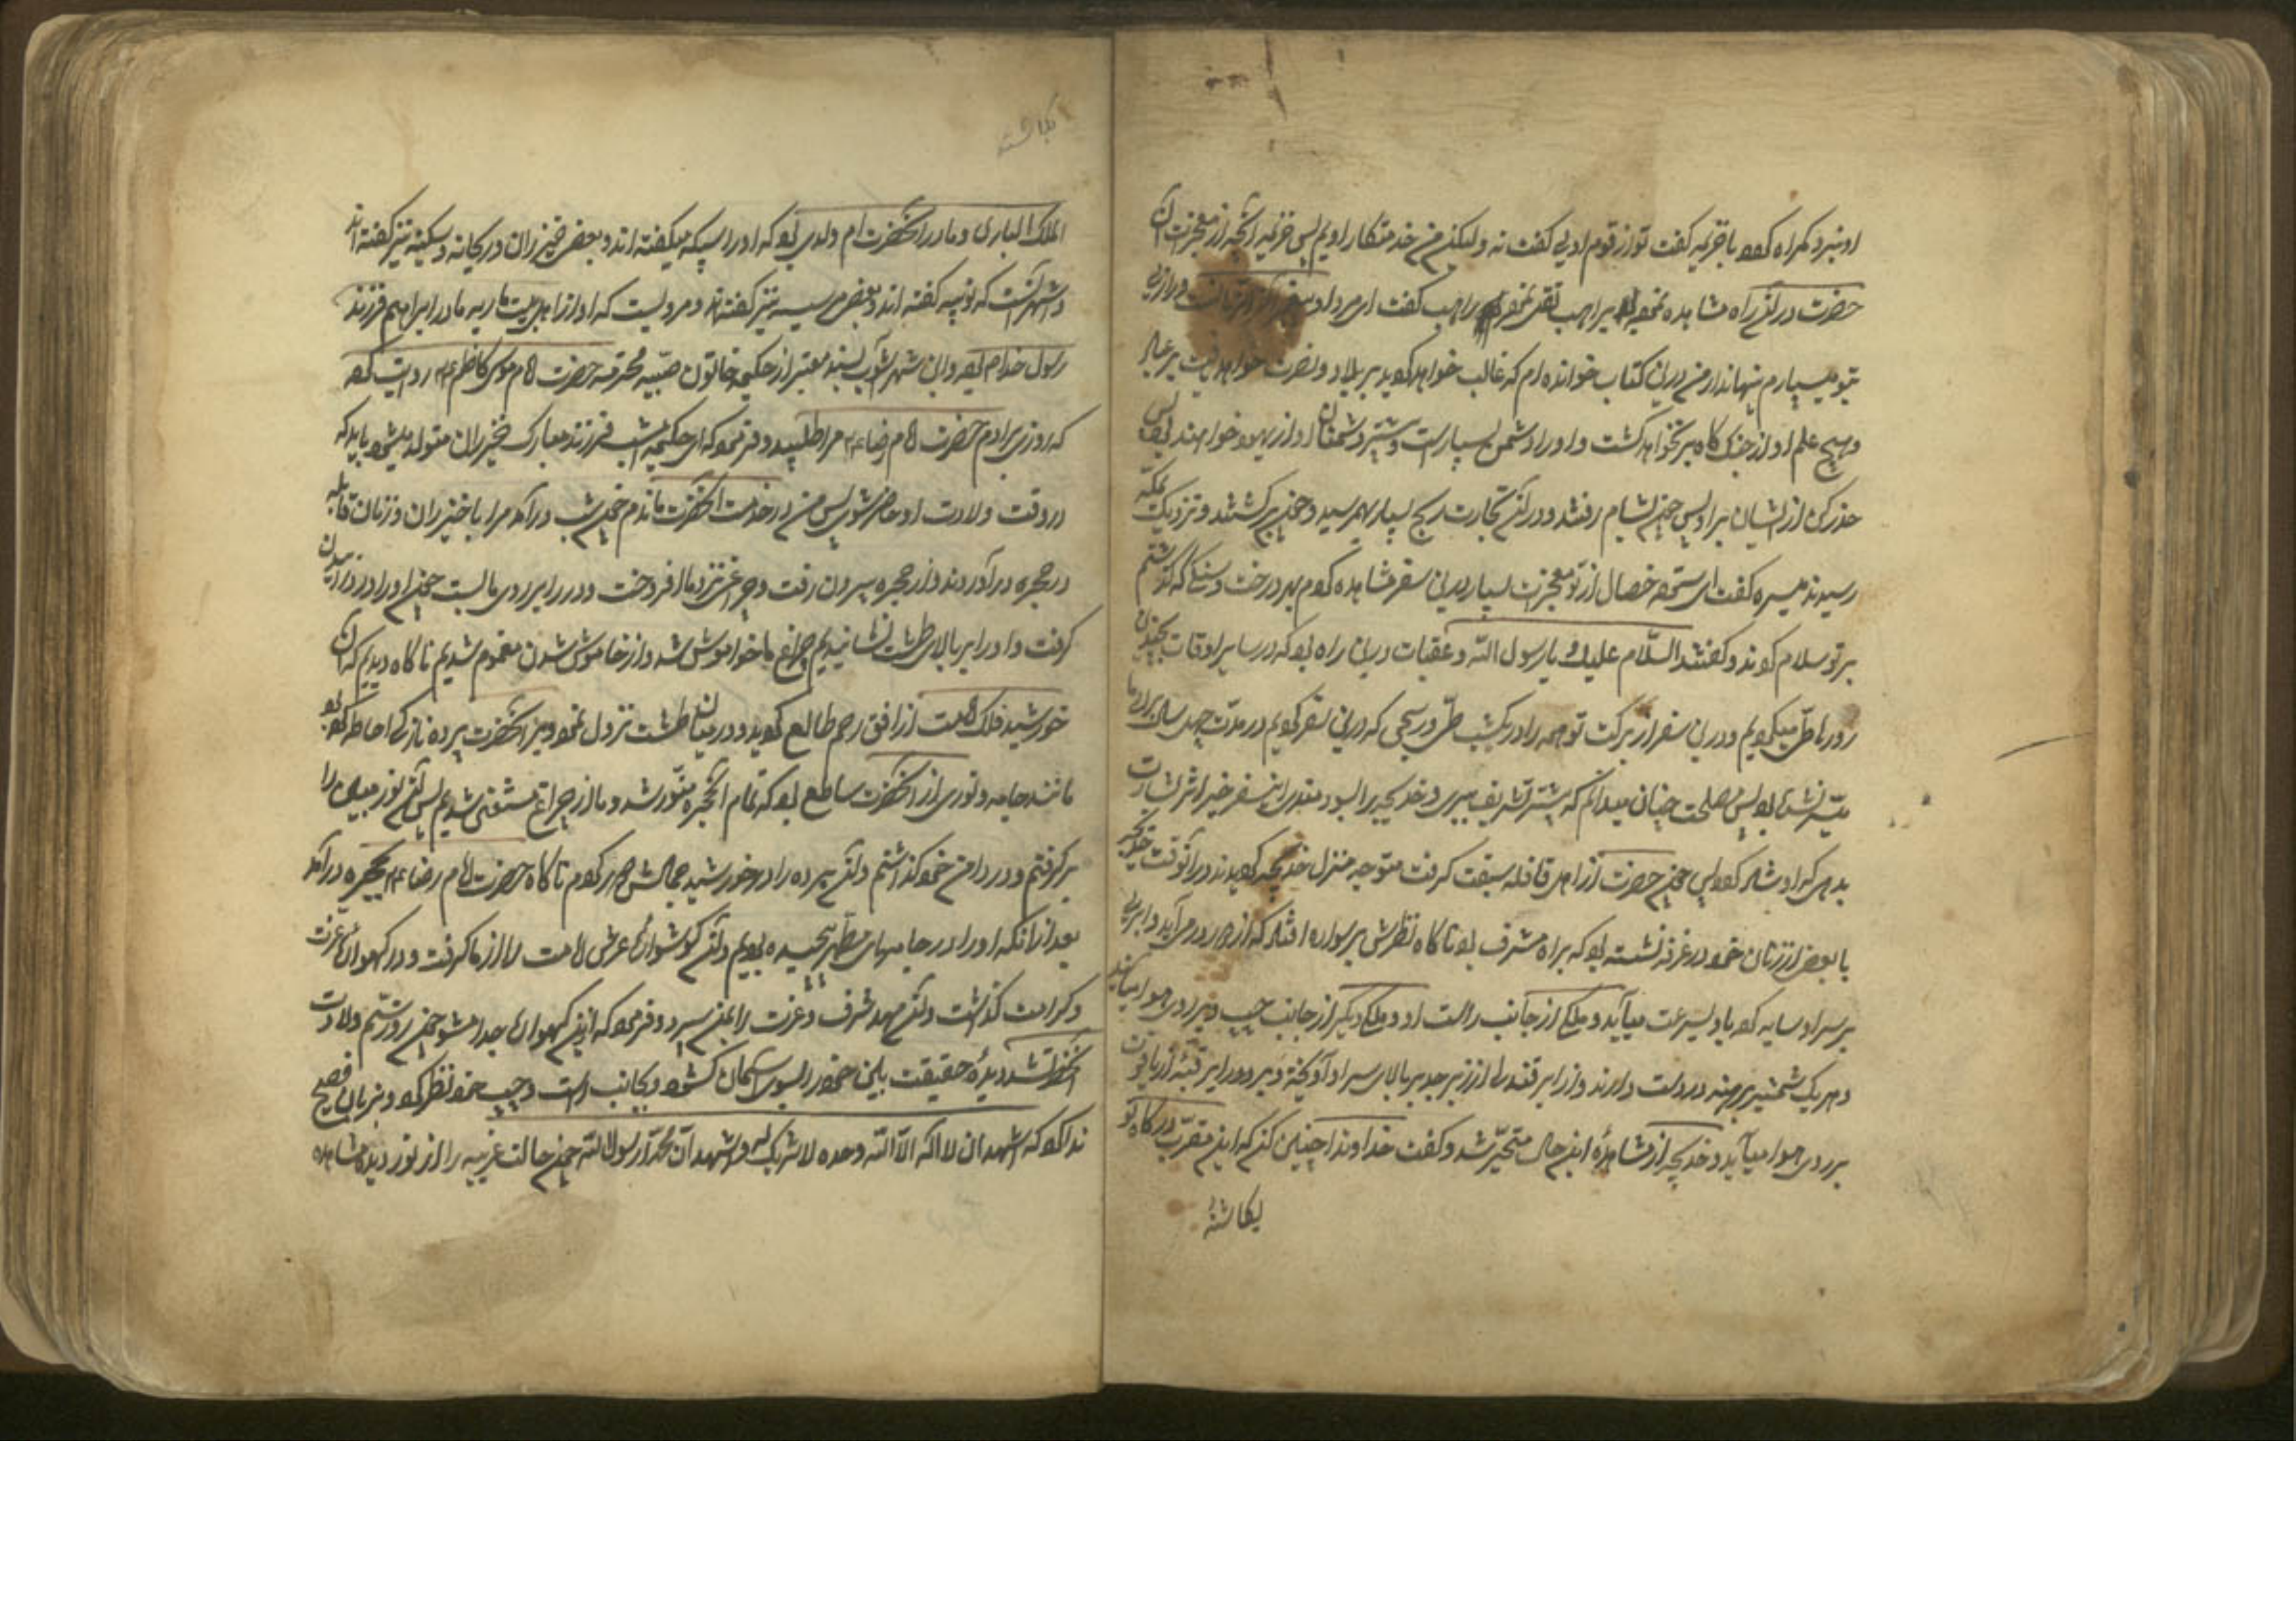 او نبرد که همراه بود با خزیمه گفت تو از قوم اویی گفت نه ولیکن من خدمتکار اویم پس خزیمه آنچه از معجزات آن
حضرت در آن راه مشاهده نموده براهب نقل نمود راهب گفت ای مرد
بتو میسپارم پنهاندار من در این کتاب خوانده ام که غالب خواهد گردید بر بلاد و نصرت خواهد یافت بر عباد
و هیچ علم او از جنگ گاه برنخواهد گشت و او را دشمن بسیار است و بیشتر دشمنان او از یهود خواهند بود پس
حذر کن از ایشان بر او پس چون بشام رفتند و در آن تجارت ربح بسیار بهم رسید و چون برگشتند و نزدیک بمکه
رسیدند میسره گفت ای ستوده خصال از تو معجزات بسیار در این سفر مشاهده کردم بهر درخت و سنگی که گذشتم
بر تو سلام کردند و گفتند السّلام علیک یا رسول اللّه و عقبات در این راه بود که در سایر اوقات بچندین
روز ها طی میکردیم و در این سفر از برکت تو همه را در یکشب طی و ربحی که در این سفر کردیم در مدت چهل سال برای ما
میسّر نشده بود پس مصلحت چنان میدانم که پیشتر تشریف ببری و خدیجه را بسودمندی این سفر خیر اثر بشارت
بدهی که او شاد گردد پس چون حضرت از اهل قافله سبقت گرفت متوجه منزل خدیجه گردیدند در آنوقت خدیجه
با بعضی از زنان خود در غرفه نشسته بود که براه مشرف بود ناگاه نظرش بر سواره افتاد که از دور می آید و ابری
بر سر او سایه کرده با او بسرعت میآید و ملکی از جانب راست او و ملکی دیگر از جانب چپ او در هوا میآیند
و هر یک شمشیر برهنه در دست دارند و از ابر قندیلی از زبرجد بر بالای سر او آویخته و بر دور ابر قبّه از یاقوت
بر روی هوا میآید و خدیجه از مشاهدهٔ این حال متحیّر شد و گفت خداوندا چنین کن که این مقرّب درگاه تو
یکاشنهٔ
الملک الباری و مادر آنحضرت ام ولدی بود که او را سبیکه میگفته اند و بعضی خیزران و ریحانه و سکینه نیز گفته اند
و اشهر آنست که نوبیه گفته اند و بعضی مریسیه نیز گفته اند و مرویست که او از اهل بیت ماریه مادر ابراهیم فرزند
رسول خدا م بود و ابن شهرآشوب بسند معتبر از حکیمه خاتون صبیّه محترمه حضرت امام موسی کاظم ع م روایت کرده
که روزی برادرم حضرت امام رضا ع م مرا طلبید و فرمود که ای حکیمه امشب فرزند مبارک خیزران متولد میشود باید که
در وقت ولادت او حاضر شوی پس من در خدمت آنحضرت ماندم چون شب در آمد مرا با خیزران و زنان قابله
در حجره در آوردند و از حجره بیرون رفت و چراغی نزد ما افروخت و در را بر روی ما بست چون او را درد زائیدن
گرفت و او را بر بالای طشت نشانیدیم چراغ ما خواموش شد و از خاموش شدن مغموم شدیم ناگاه دیدیم که آن
خورشید فلک امامت از افق رحم طالع گردید و در میان طشت نزول نمود و بر آنحضرت پرده نازکی احاطه کرده بود
مانند جامه و نوری از آنحضرت ساطع بود که تمام آنحجره منوّر شد و ما از چراغ مستغنی شدیم پس آن نور مبین را
بر گرفتم و در دامن خود گذاشتم و آن پرده را از خورشید جمالش دور کردم ناگاه حضرت امام رضا ع م بحجره در آمد
بعد از آنکه او را در جامهای مطهر پیچیده بودیم و آن گوشوارهٔ عرش امامت را از ما گرفت و در گهوارهٔ عزت
و کرامت گذاشت و آن مهد شرف و عزت را بمن سپرد و فرمود که از این گهواره جدا مشو چون روز سیّم ولادت
آنحضرت شد دیدهٔ حقیقت بین خود را بسوی آسمان گشود و بجانب راست و چپ خود نظر کرد و بزبان فصیح
ندا کرد که اشهد ان لا اله الّا اللّه وحده لا شریک له و اشهد انّ محمّداً رسول اللّه چون حالت غریبه را از نور دیده مشاهده